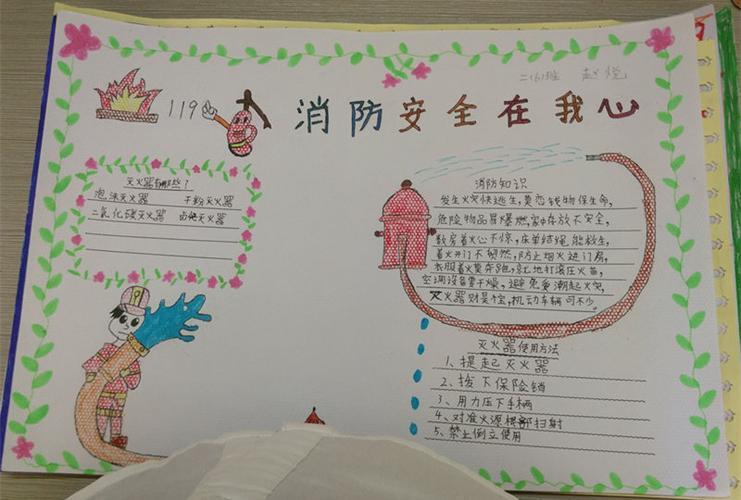 二(6)班 赵悦
119
消防安全在我心
灭火器有哪些?
泡沫灭火器 干粉灭火器
二氧化碳灭火器
消防知识
发生火灾快逃生,莫恋钱物保生命,
危险物品易爆燃,家中存放不安全,
数房着火心不惊,床单结绳能救生,
着火开门不 防止烟火进门房,
衣服着火莫奔跑,就地打滚压火苗,
空调设备要干燥,避免受潮起火灾,
灭火器财是怪,机动车辆司不少。
灭火器使用方法
1、提起灭火器
2、拔下保险销
3、用力压下手柄
4、对准火源根部扫射
5、禁止倒立使用